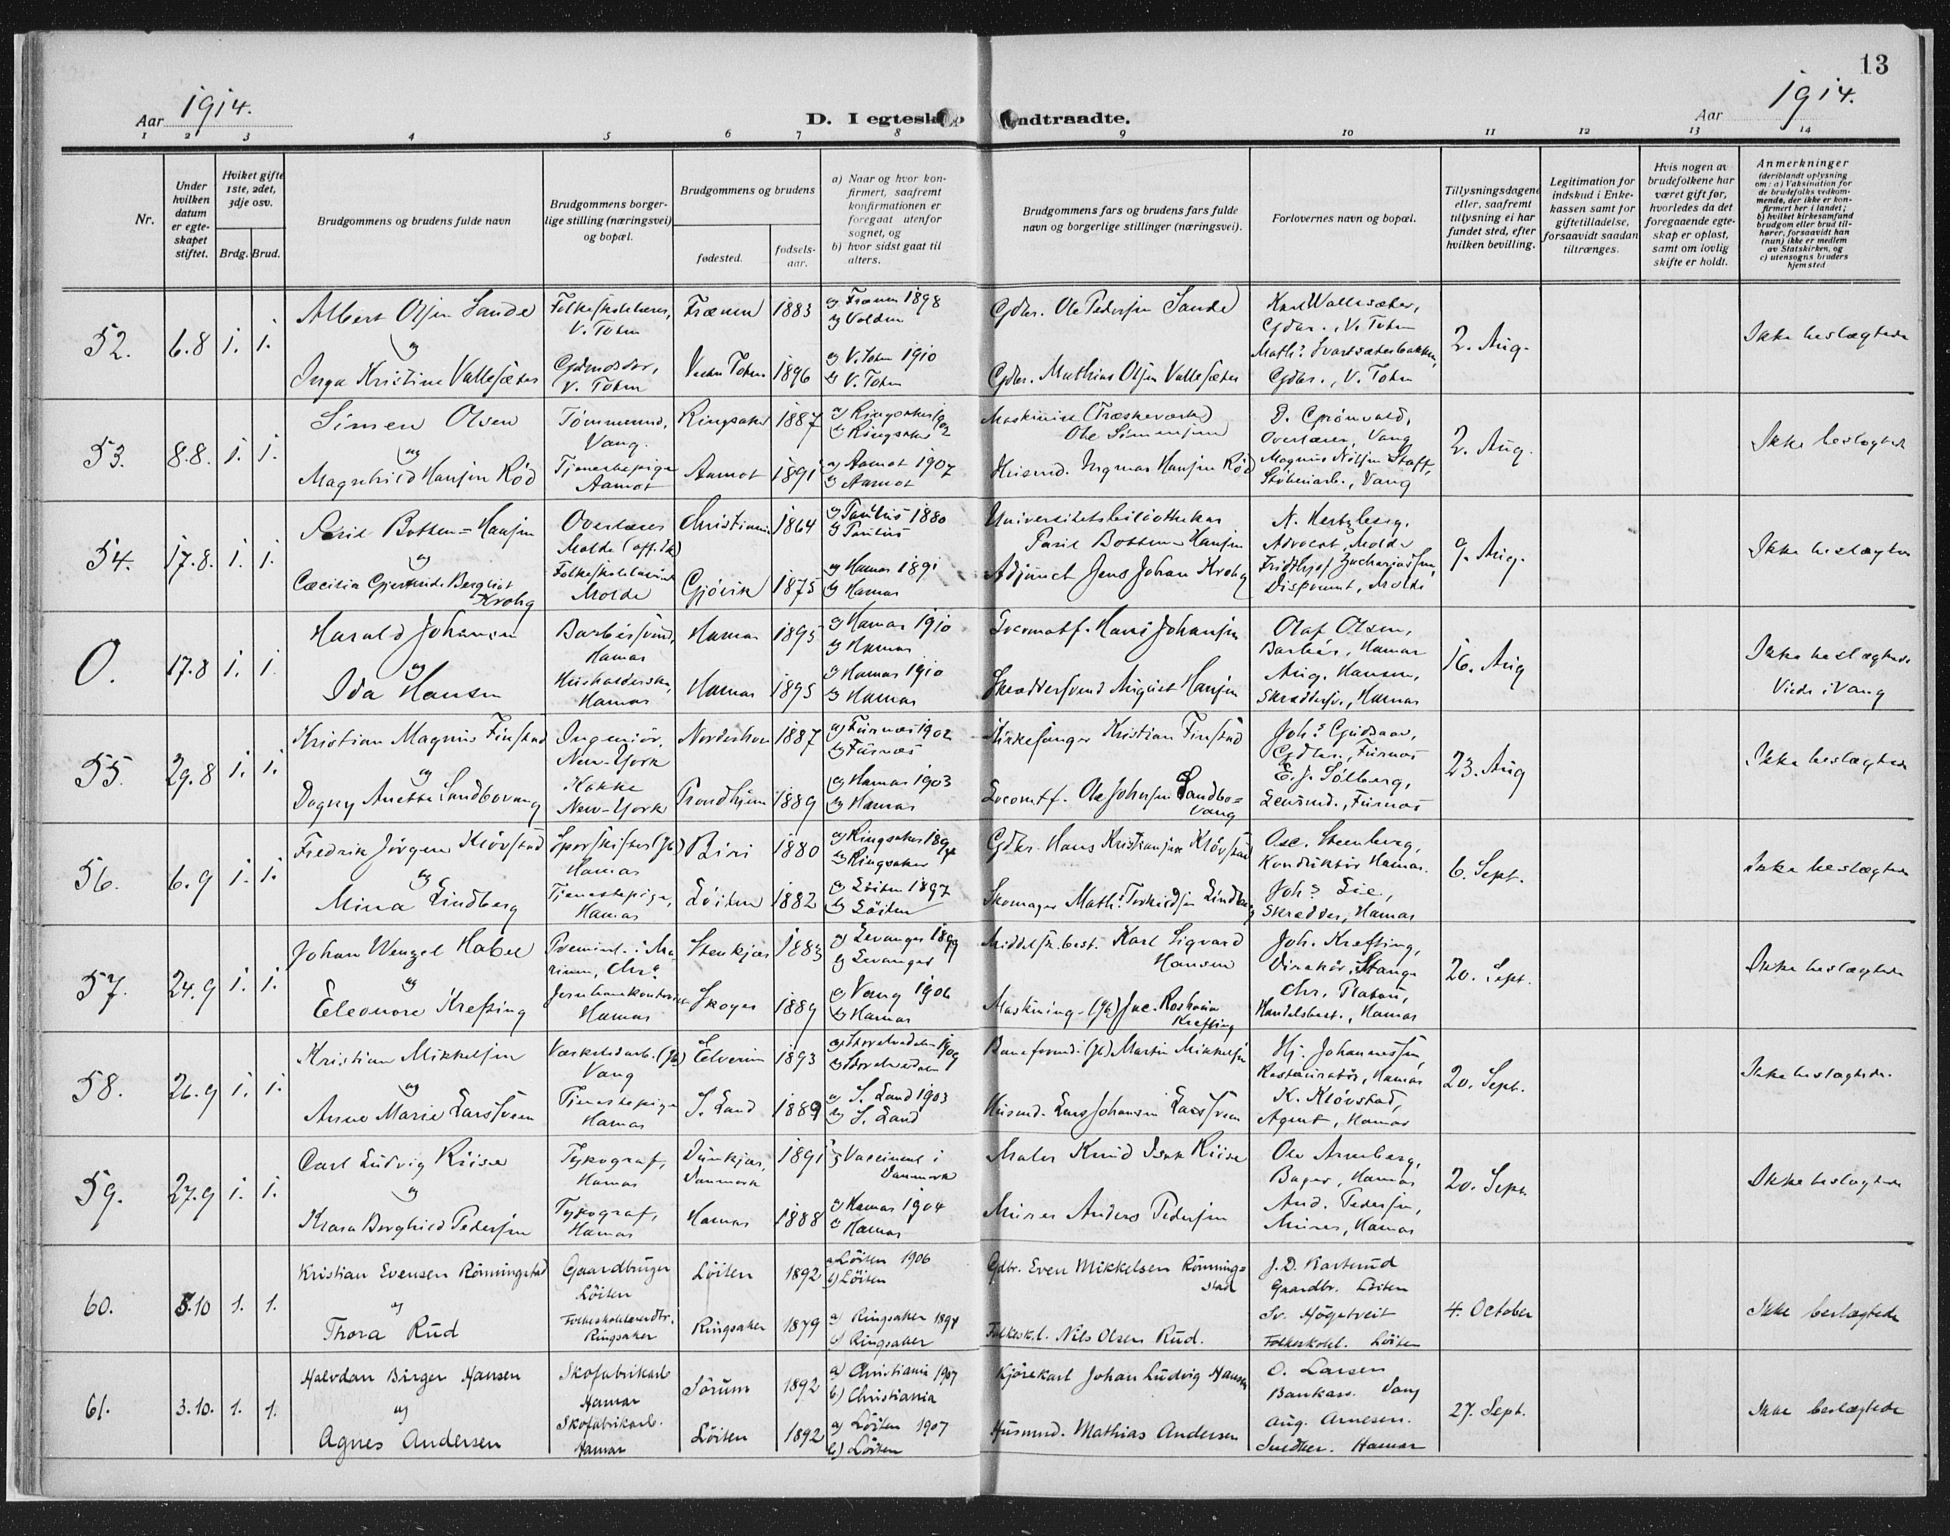 13
Aar 1914.
D. I egtesk
ndtraadte.
Aar 1914.
1 2 3 4 5 6 7 8 9 10 11 12 13 14
Nr.
Under hvilken datum er egteskapet stiftet.
Hviket gifte 1ste, 2det, 3dje osv.
Brdg. Brud.
Brudgommens og brudens fulde navn
Brudgommens borgerlige stilling (næringsvei) og bopæl.
Brudgommens og brudens
fødested.
fødsels-aar.
a) Naar og hvor konfirmert, saafremt konfirmationen er foregaat utenfor sognet, og
b) hvor sidst gaat til alters.
Brudgommens fars og brudens fars fulde navn og borgerlige stillinger (næringsvei).
Forlovernes navn og bopæl.
Tillysningsdagene eller, saafremt tillysning ei har fundet sted, efter hvilken bevilling.
Legitimation for indskud i Enkekassen samt for giftetilladelse, forsaavidt saadan tiltrænges.
Hvis nogen av brudefolkene har været gift før, hvorledes da det foregaaende egteskap er opløst, samt om lovlig skifte er holdt.
Anmerkninger (deriblandt oplysning om: a) Vaksination for de brudefolks vedkommende, der ikke er konfirmert her i landet; b) hvilket kirkesamfund brudgom eller brud tilhører, forsaavidt han (hun) ikke er medlem av Statskirken, og c) utensogns bruders hjemsted
52. 6.8 1. 1. Albert Olsen Sande Folkeskolelærer, V. Toten Frænen 1883 a) Frænen 1898 b) Volden Gdbr. Ole Pedersen Sande Karl Vallesæter, Gdbr., V. Toten 2. Aug. Ikke beslægtede
og
Inga Kristine Vallesæter Gdmdsdtr, V. Toten Vestre Toten 1896 a) V. Toten 1910 b) V. Toten Gdbr. Mathias Olsen Vallesæter Maths. Svartsæterbakken, Gdbr., V. Toten
53. 8.8. 1. 1. Simen Olsen Tømmermd, Vang. Ringsaker 1887 a) Ringsaker 1902 b) Ringsaker Maskinist (Træskeværk) Ole Simensen D. Grønvold, Overlærer, Vang 2. Aug. Ikke beslægtede
og
Magnhild Hansen Rød Tjenestepige Aamot Aamot 1891 a) Aamot 1907 b) Aamot Husmd. Ingmar Hansen Rød Magnus Nilsen Staff, Støberiarb., Vang
54. 17.8. 1. 1. Paul Botten-Hansen Overlærer Molde Christiania 1864 a) Paulus 1880 b) Paulus Universitetsbibliothekar Paul Botten-Hansen N. Hertzberg, Advocat, Molde 9. Aug. Ikke beslægtede
og
Cæcilia Gjertrude Bergliot Krohg Folkeskolelærerinde Molde Gjøvik 1875 a) Hamar 1891 b) Hamar Adjunct Jens Johan Krohg Fridthjof Zachariassen, Disponent, Molde
0. 17.8 1. 1. Harald Johansen Barbersvend, Hamar Hamar 1895 a) Hamar 1910 b) Hamar Locomotf. Hans Johansen Olaf Olsen, Barber, Hamar 16. Aug Ikke beslægtede
og
Ida Hansen Husholderske, Hamar Hamar 1895 a) Hamar 1910 b) Hamar Skræddersvend August Hansen Aug. Hansen, Skræddersv., Hamar Viede i Vang
55. 29.8 1. 1. Kristian Magnus Finstad Ingeniør, New-York Norderhov 1887 a) Furnes 1902 b) Furnes Kirkesanger Kristian Finstad Johs. Gjusaas, Gdbr., Furnes 23. Aug Ikke beslægtede
og
Dagny Anette Sandbovang Kokke New-York Trondhjem 1889 a) Hamar 1903 b) Hamar Locomtf. Ole Johnsen Sandbovang E. J. Solberg, Lensmd., Furnes
56. 6.9 1. 1. Fredrik Jörgen Kløvstad Sporskifter (Jb) Hamar Biri 1880 a) Ringsaker 1894 b) Ringsaker Gdbr. Hans Kristiansen Kløvstad Osc. Steenberg, Konduktør Hamar. 6. Sept. Ikke beslægtede
og
Mina Lindberg Tjenestepige, Hamar Löiten 1882 a) Löiten 1897 b) Löiten Skomager Maths. Torkildsen Lindberg Johs. Lie, Skrædder, Hamar
57. 24.9 1. 1. Johan Wenzel Habel Stenkjær 1883 a) Levanger 1899 b) Levanger Middelsk.best. Karl Sigvard Hansen Joh. Krefting, Direktør, Stange 20. Sept. Ikke beslægtede
og
Eleonore Krefting Hamar Skoger 1889 a) Vang 1906 b) Hamar Maskining. (Jb) Jac. Rosharin Krefting Chr. Platou, Handelsbest., Hamar
58. 26.9 1. 1. Kristian Mikkelsen Værkstedarb. (Jb) Vang Elverum 1893 a) Storelvedalen 1909 b) Storelvedalen Baneformd. (Jb) Martin Mikkelsen Hj. Johannessen, Restauratør, Hamar 20. Sept. Ikke beslægtede.
og
Anne Marie Larssveen Tjenestepige Hamar S. Land 1889 a) S. Land 1903 b) S. Land Husmd. Lars Johansen Larssveen K. Kløvstad, Agent, Hamar
59. 27.9 1. 1. Carl Ludvig Riise Typograf, Hamar Danmark 1891 Vaccinert i Danmark Maler Knud Isak Riise Ole Arneberg, Bager, Hamar 20. Sept. Ikke beslægtede
og
Klara Borghild Pedersen Typograf, Hamar Hamar 1888 a) Hamar 1904 b) Hamar Murer Anders Pedersen And. Pedersen, Murer, Hamar
60. 5.10 1. 1. Kristian Evensen Rönningstad Gaardbruger Löiten Löiten 1892 a) Löiten 1906 b) Löiten Gdbr. Even Mikkelsen Rönningstad J. D. Karterud Gaardbr. Löiten 4. October Ikke beslægtede
og
Thora Rud Ringsaker Ringsaker 1879 a) Ringsaker 1894 b) Ringsaker Folkeskl. Nils Olsen Rud. Sv. Högetveit Folkeskol. Löiten
61. 3.10. 1. 1. Halvdan Birger Hansen Skofabrikarb. Hamar Sörum 1892 a) Christiania 1907 b) Christiania Kjørekarl Johan Ludvig Hansen O. Larsen Bankass. Vang 27. Sept. Ikke beslægtede
og
Agnes Andersen Skofabrikarb. Hamar Löiten 1892 a) Löiten 1907 b) Löiten Husmd. Mathias Andersen Aug. Arnesen. Snedker. Hamar